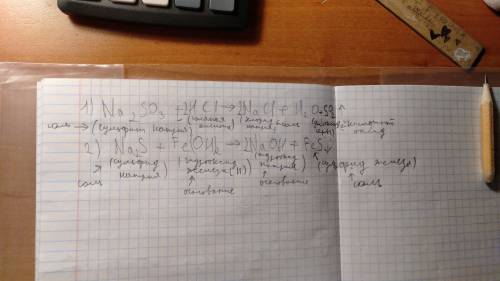 1) Na₂SO₃ + 2HCl → 2NaCl + H₂O + SO₂↑
соль → (сульфит натрия) (соляная кислота) (хлорид натрия) соль кислотный оксид
2) Na₂S + Fe(OH)₂ → 2NaOH + FeS↓
(сульфид натрия) (гидроксид железа (II)) (гидроксид натрия) (сульфид железа)
соль основание основание соль